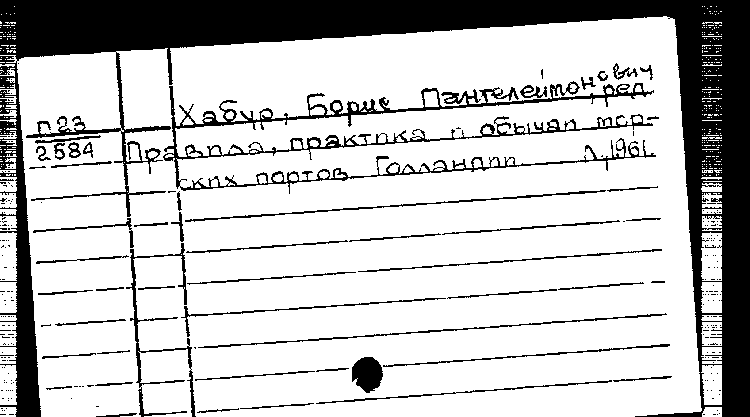 П23
2584
Хабур, Борис Пантелеймонович, ред.
Правила, практика и обычаи мор-
ских портов Голландии Л., 1961.